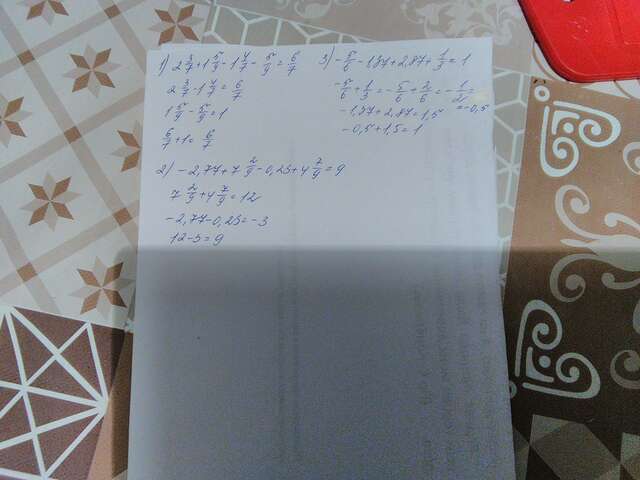 1) 2 3/7 + 1 5/9 - 1 4/7 - 5/9 = 6/7
2 3/7 - 1 4/7 = 6/7
1 5/9 - 5/9 = 1
6/7 + 1 = 6/7
2) - 2,77 + 7 2/9 - 0,23 + 4 7/9 = 9
7 2/9 + 4 7/9 = 12
-2,77 - 0,23 = -3
12 - 3 = 9
3) - 5/6 - 1,37 + 2,87 + 1/3 = 1
- 5/6 + 1/3 = - 5/6 + 2/6 = - 1/2 =
= -0,5
-1,37 + 2,87 = 1,5
-0,5 + 1,5 = 1